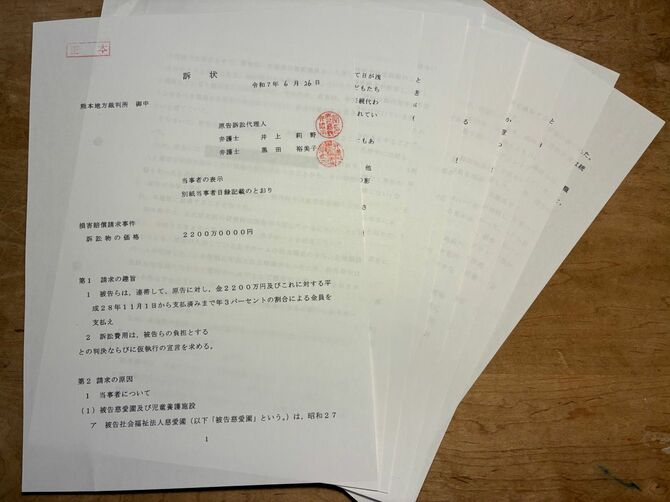 正本
訴状
令和7年6月26日
熊本地方裁判所 御中
原告訴訟代理人
弁護士 井上 莉野
弁護士 黒田 裕美子
当事者の表示
別紙当事者目録記載のとおり
損害賠償請求事件
訴訟物の価格 2200万0000円
第1 請求の趣旨
1 被告らは,連帯して,原告に対し,金2200万円及びこれに対する平
成28年11月1日から支払済みまで年3パーセントの割合による金員を
支払え
2 訴訟費用は,被告らの負担とする
との判決ならびに仮執行の宣言を求める。
第2 請求の原因
1 当事者について
(1)被告慈愛園及び児童養護施設
ア 被告社会福祉法人慈愛園(以下「被告慈愛園」という。)は,昭和27
1
て日が浅
どもたち
親代わ
れてい
もあ
他
の影
さ